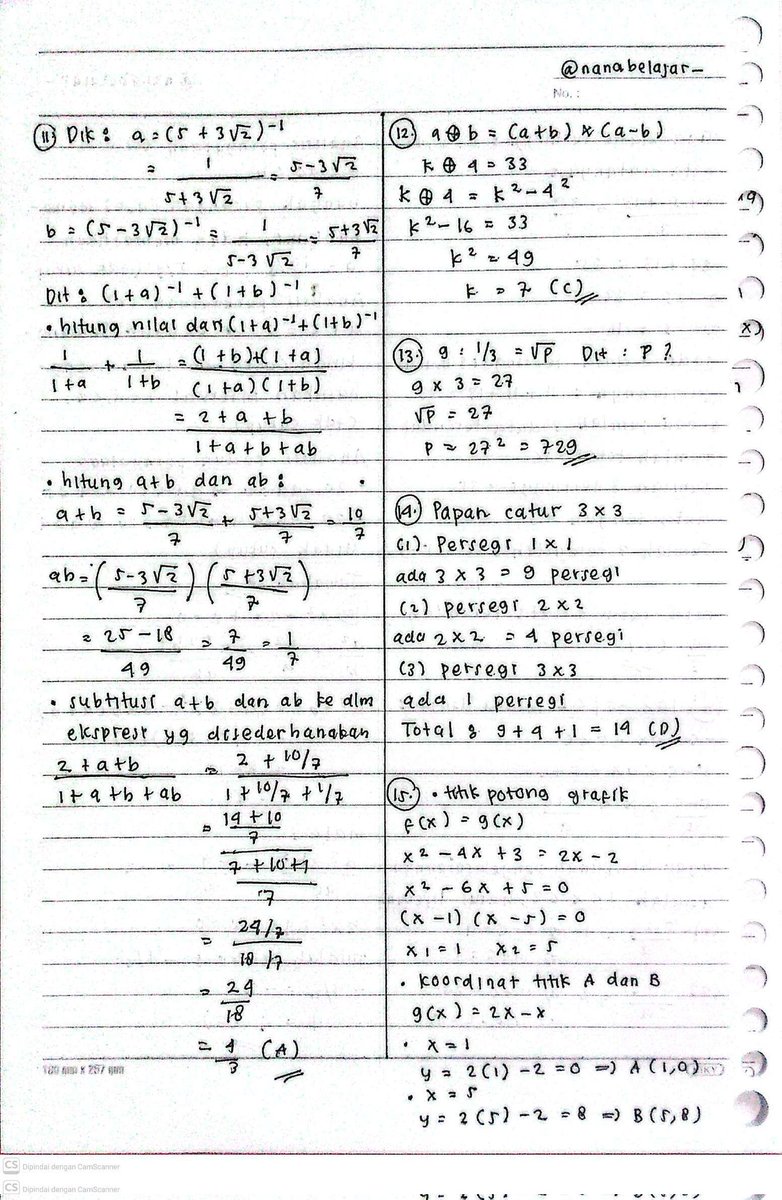 @nanabelajar_
No. :
11. Dik : a = (5 + 3√2)⁻¹
= 1/(5+3√2) = (5-3√2)/7
b = (5 - 3√2)⁻¹ = 1/(5-3√2) = (5+3√2)/7
Dit : (1+a)⁻¹ + (1+b)⁻¹ :
• hitung nilai dari (1+a)⁻¹ + (1+b)⁻¹
1/(1+a) + 1/(1+b) = ((1+b)+(1+a))/((1+a)(1+b))
= (2 + a + b)/(1+a+b+ab)
• hitung a+b dan ab :
a+b = (5-3√2)/7 + (5+3√2)/7 = 10/7
ab = ((5-3√2)/7) ((5+3√2)/7)
= (25-18)/49 = 7/49 = 1/7
• subtitusi a+b dan ab ke dlm
ekspresi yg disederhanakan
(2+a+b)/(1+a+b+ab) = (2 + 10/7)/(1 + 10/7 + 1/7)
= ((14+10)/7)/((7+10+1)/7)
= (24/7)/(18/7)
= 24/18
= 4/3 (A)
180 mm x 257 mm
12. a ⊕ b = (a+b) × (a-b)
k ⊕ 4 = 33
k ⊕ 4 = k² - 4²
k² - 16 = 33
k² = 49
k = 7 (C)
13. 9 : 1/3 = √P Dit : P ?
9 x 3 = 27
√P = 27
P = 27² = 729
14. Papan catur 3 x 3
(1). Persegi 1 x 1
ada 3 x 3 = 9 persegi
(2) persegi 2 x 2
ada 2 x 2 = 4 persegi
(3) persegi 3 x 3
ada 1 persegi
Total : 9 + 4 + 1 = 14 (D)
15. • titik potong grafik
f(x) = g(x)
x² - 4x + 3 = 2x - 2
x² - 6x + 5 = 0
(x - 1) (x - 5) = 0
x₁ = 1 x₂ = 5
• koordinat titik A dan B
g(x) = 2x - x
• x = 1
y = 2(1) - 2 = 0 => A (1,0)
• x = 5
y = 2(5) - 2 = 8 => B(5,8)
CS Dipindai dengan CamScanner
CS Dipindai dengan CamScanner